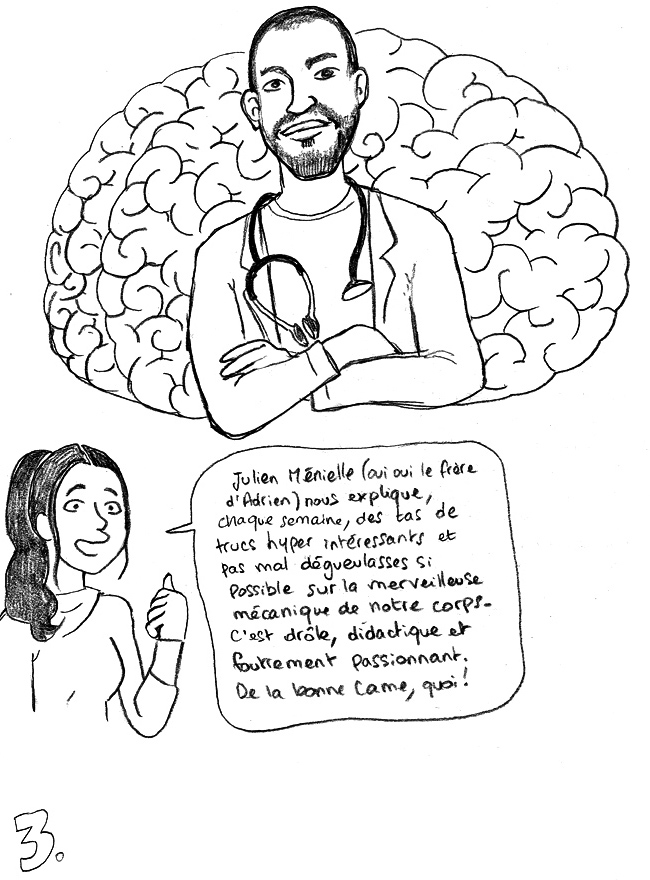 Julien Ménielle (oui oui le frère
d'Adrien) nous explique,
chaque semaine, des tas de
trucs hyper intéressants et
pas mal dégueulasses si
possible sur la merveilleuse
mécanique de notre corps.
C'est drôle, didactique et
foutrement passionnant.
De la bonne came, quoi!
3.